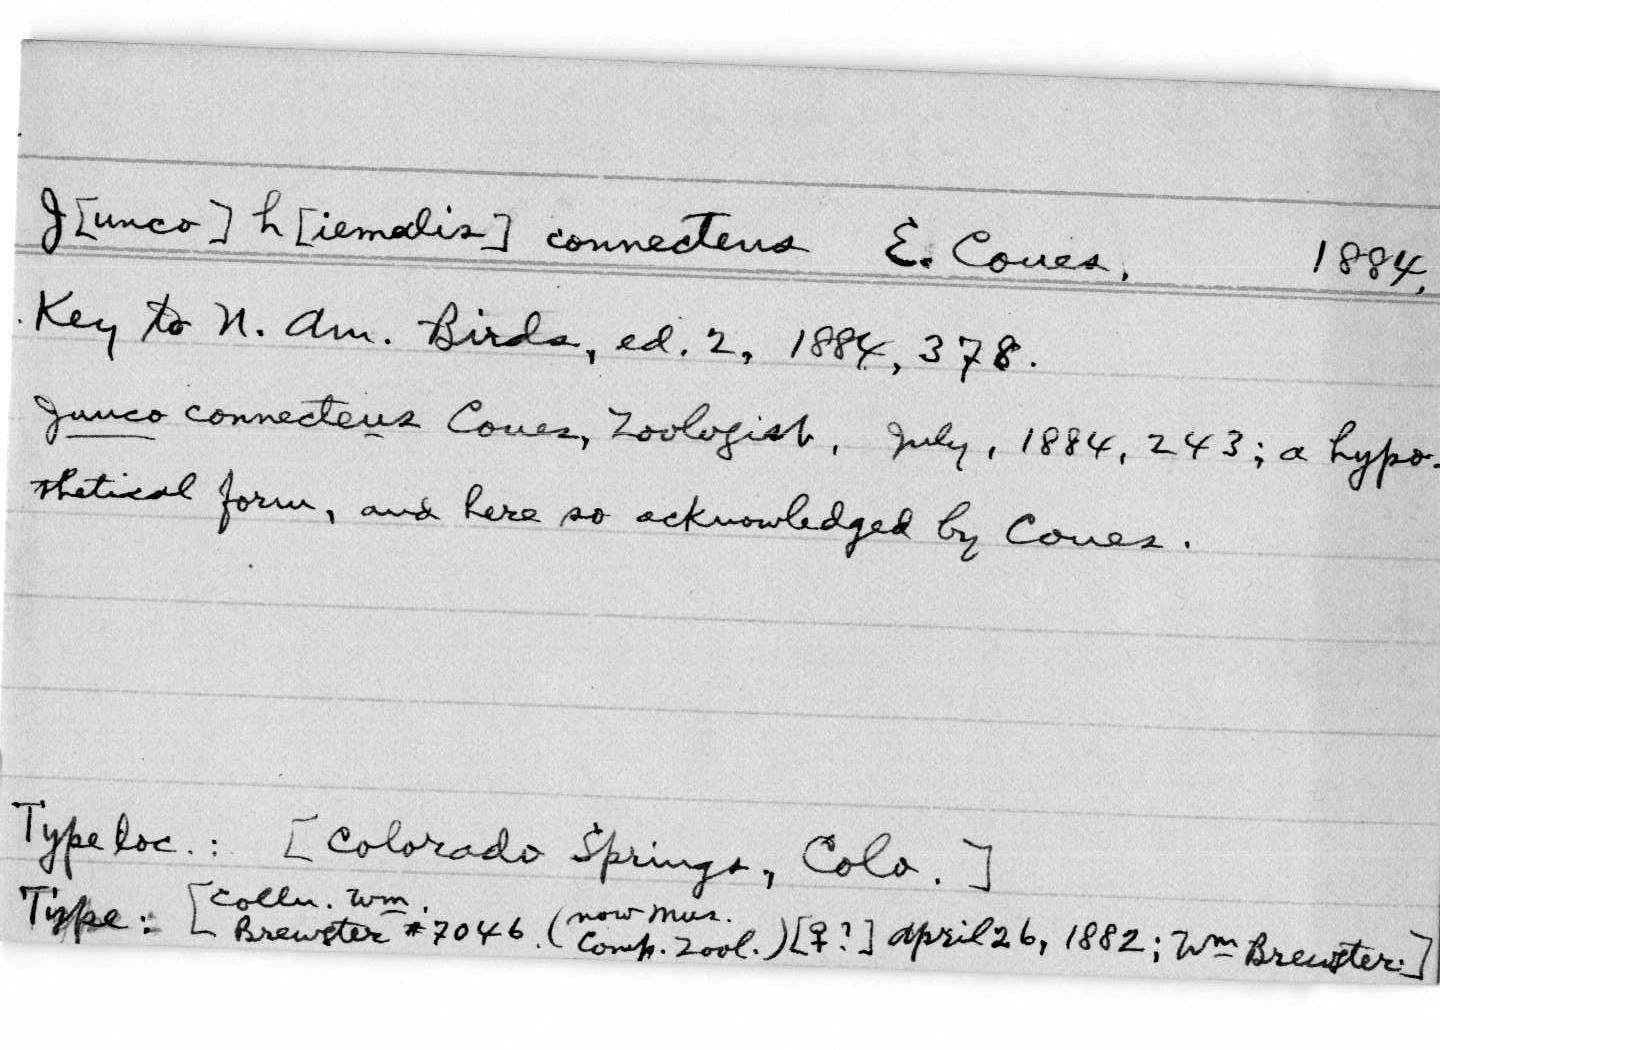 J[unco] h[iemalis] connectens E. Coues. 1884.
Key to N. Am. Birds, ed. 2, 1884, 378.
Junco connectens Coues, Zoologist, July, 1884, 243; a hypo-
thetical form, and here so acknowledged by Coues.
Type loc.: [Colorado Springs, Colo.]
Type: [Colln. Wm. Brewster #7046. (now Mus. Comp. Zool.) [♀?] April 26, 1882; Wm Brewster.]